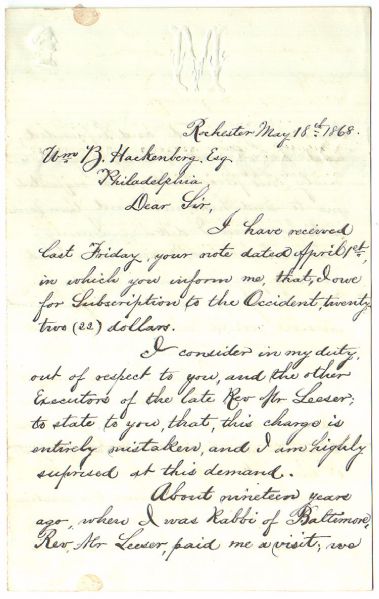 M
Rochester May 18th 1868.
Wm B. Hackenberg Esq
Philadelphia
Dear Sir,
I have received
last Friday, your note dated April 1st,
in which you inform me, that, I owe
for Subscription to the Occident, twenty
two (22) dollars.
I consider in my duty,
out of respect to you, and the other
Executors of the late Rev Mr Leeser;
to state to you, that, this charge is
entirely mistaken, and I am highly
suprised at this demand.
About nineteen years
ago, when I was Rabbi of Baltimore,
Rev. Mr Leeser, paid me a visit; we